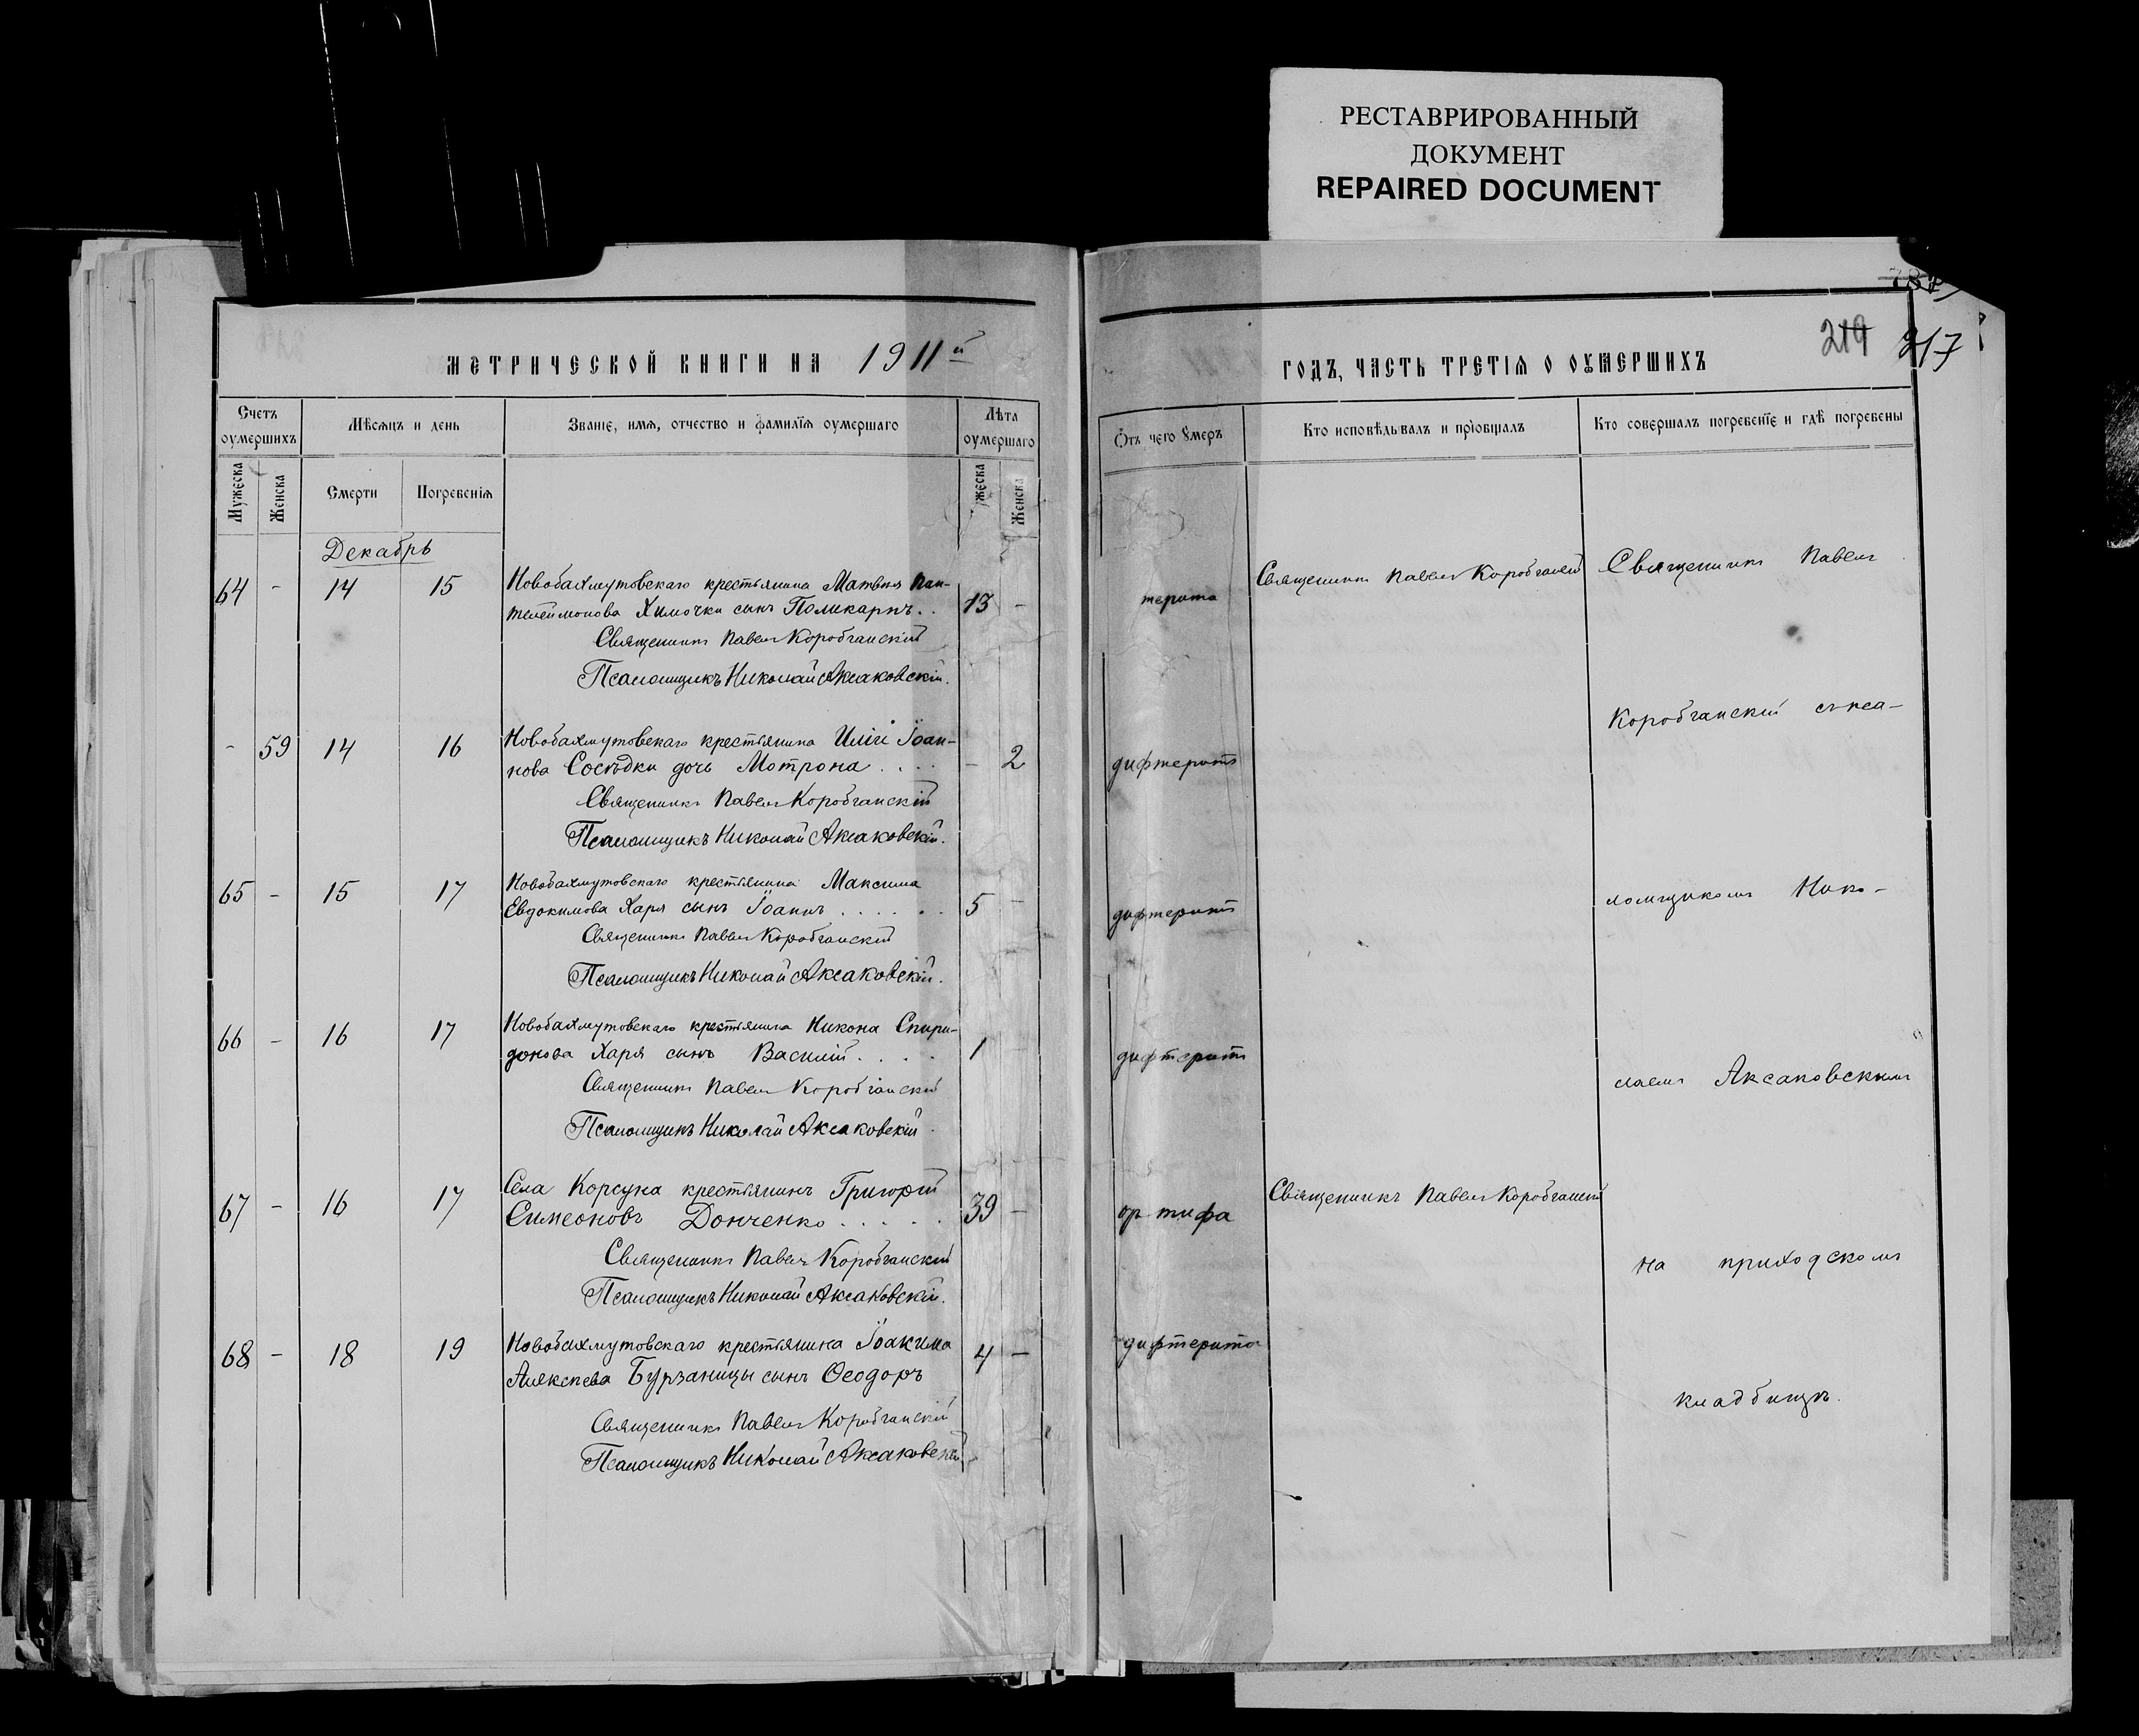 РЕСТАВРИРОВАННЫЙ
ДОКУМЕНТ
REPAIRED DOCUMENT
МЕТРИЧЕСКОЙ КНИГИ НА 1911й
Счетъ оумершихъ
Мѣсяцъ и день
Званіе, имя, отчество и фамилія оумершаго
Лѣта оумершаго
Мужеска
Женска
Смерти
Погребенія
ужеска
Женска
Декабрь
64 - 14 15 Новобахмутовскаго крестьянина Матвѣя Пан-
телеймонова Химочки сынъ Поликарпъ . . 13 -
Священникъ Павелъ Коробчанскій
Псаломщикъ Николай Аксаковскій.
- 59 14 16 Новобахмутовскаго крестьянина Иліи Іоан-
нова Сосѣдки дочь Мотрона . . . . - 2
Священникъ Павелъ Коробчанскій
Псаломщикъ Николай Аксаковскій.
65 - 15 17 Новобахмутовскаго крестьянина Максима
Евдокимова Харя сынъ Іоаннъ . . . . . . 5 -
Священникъ Павелъ Коробчанскій
Псаломщикъ Николай Аксаковскій.
66 - 16 17 Новобахмутовскаго крестьянина Никона Спири-
донова Харя сынъ Василій . . . . 1
Священникъ Павелъ Коробчанскій
Псаломщикъ Николай Аксаковскій.
67 - 16 17 Села Корсуна крестьянинъ Григорій
Симеоновъ Донченко . . . . . 39 -
Священникъ Павелъ Коробчанскій
Псаломщикъ Николай Аксаковскій.
68 - 18 19 Новобахмутовскаго крестьянина Іоакима
Алексѣева Бурзаницы сынъ Ѳеодоръ 4 -
Священникъ Павелъ Коробчанскій
Псаломщикъ Николай Аксаковскій
219 217
ГОДЪ, ЧАСТЬ ТРЕТІЯ О ОУМЕРШИХЪ
Отъ чего умеръ
Кто исповѣдывалъ и пріобщалъ
Кто совершалъ погребеніе и гдѣ погребены
терита Священникъ Павелъ Коробчанскій Священникъ Павелъ
Коробчанскій съ пса-
дифтеритъ
ломщикомъ Нико-
дифтеритъ
дифтеритъ
лаемъ Аксаковскимъ
тифа Священникъ Павелъ Коробчанскій
на приходскомъ
дифтерита
кладбищѣ.